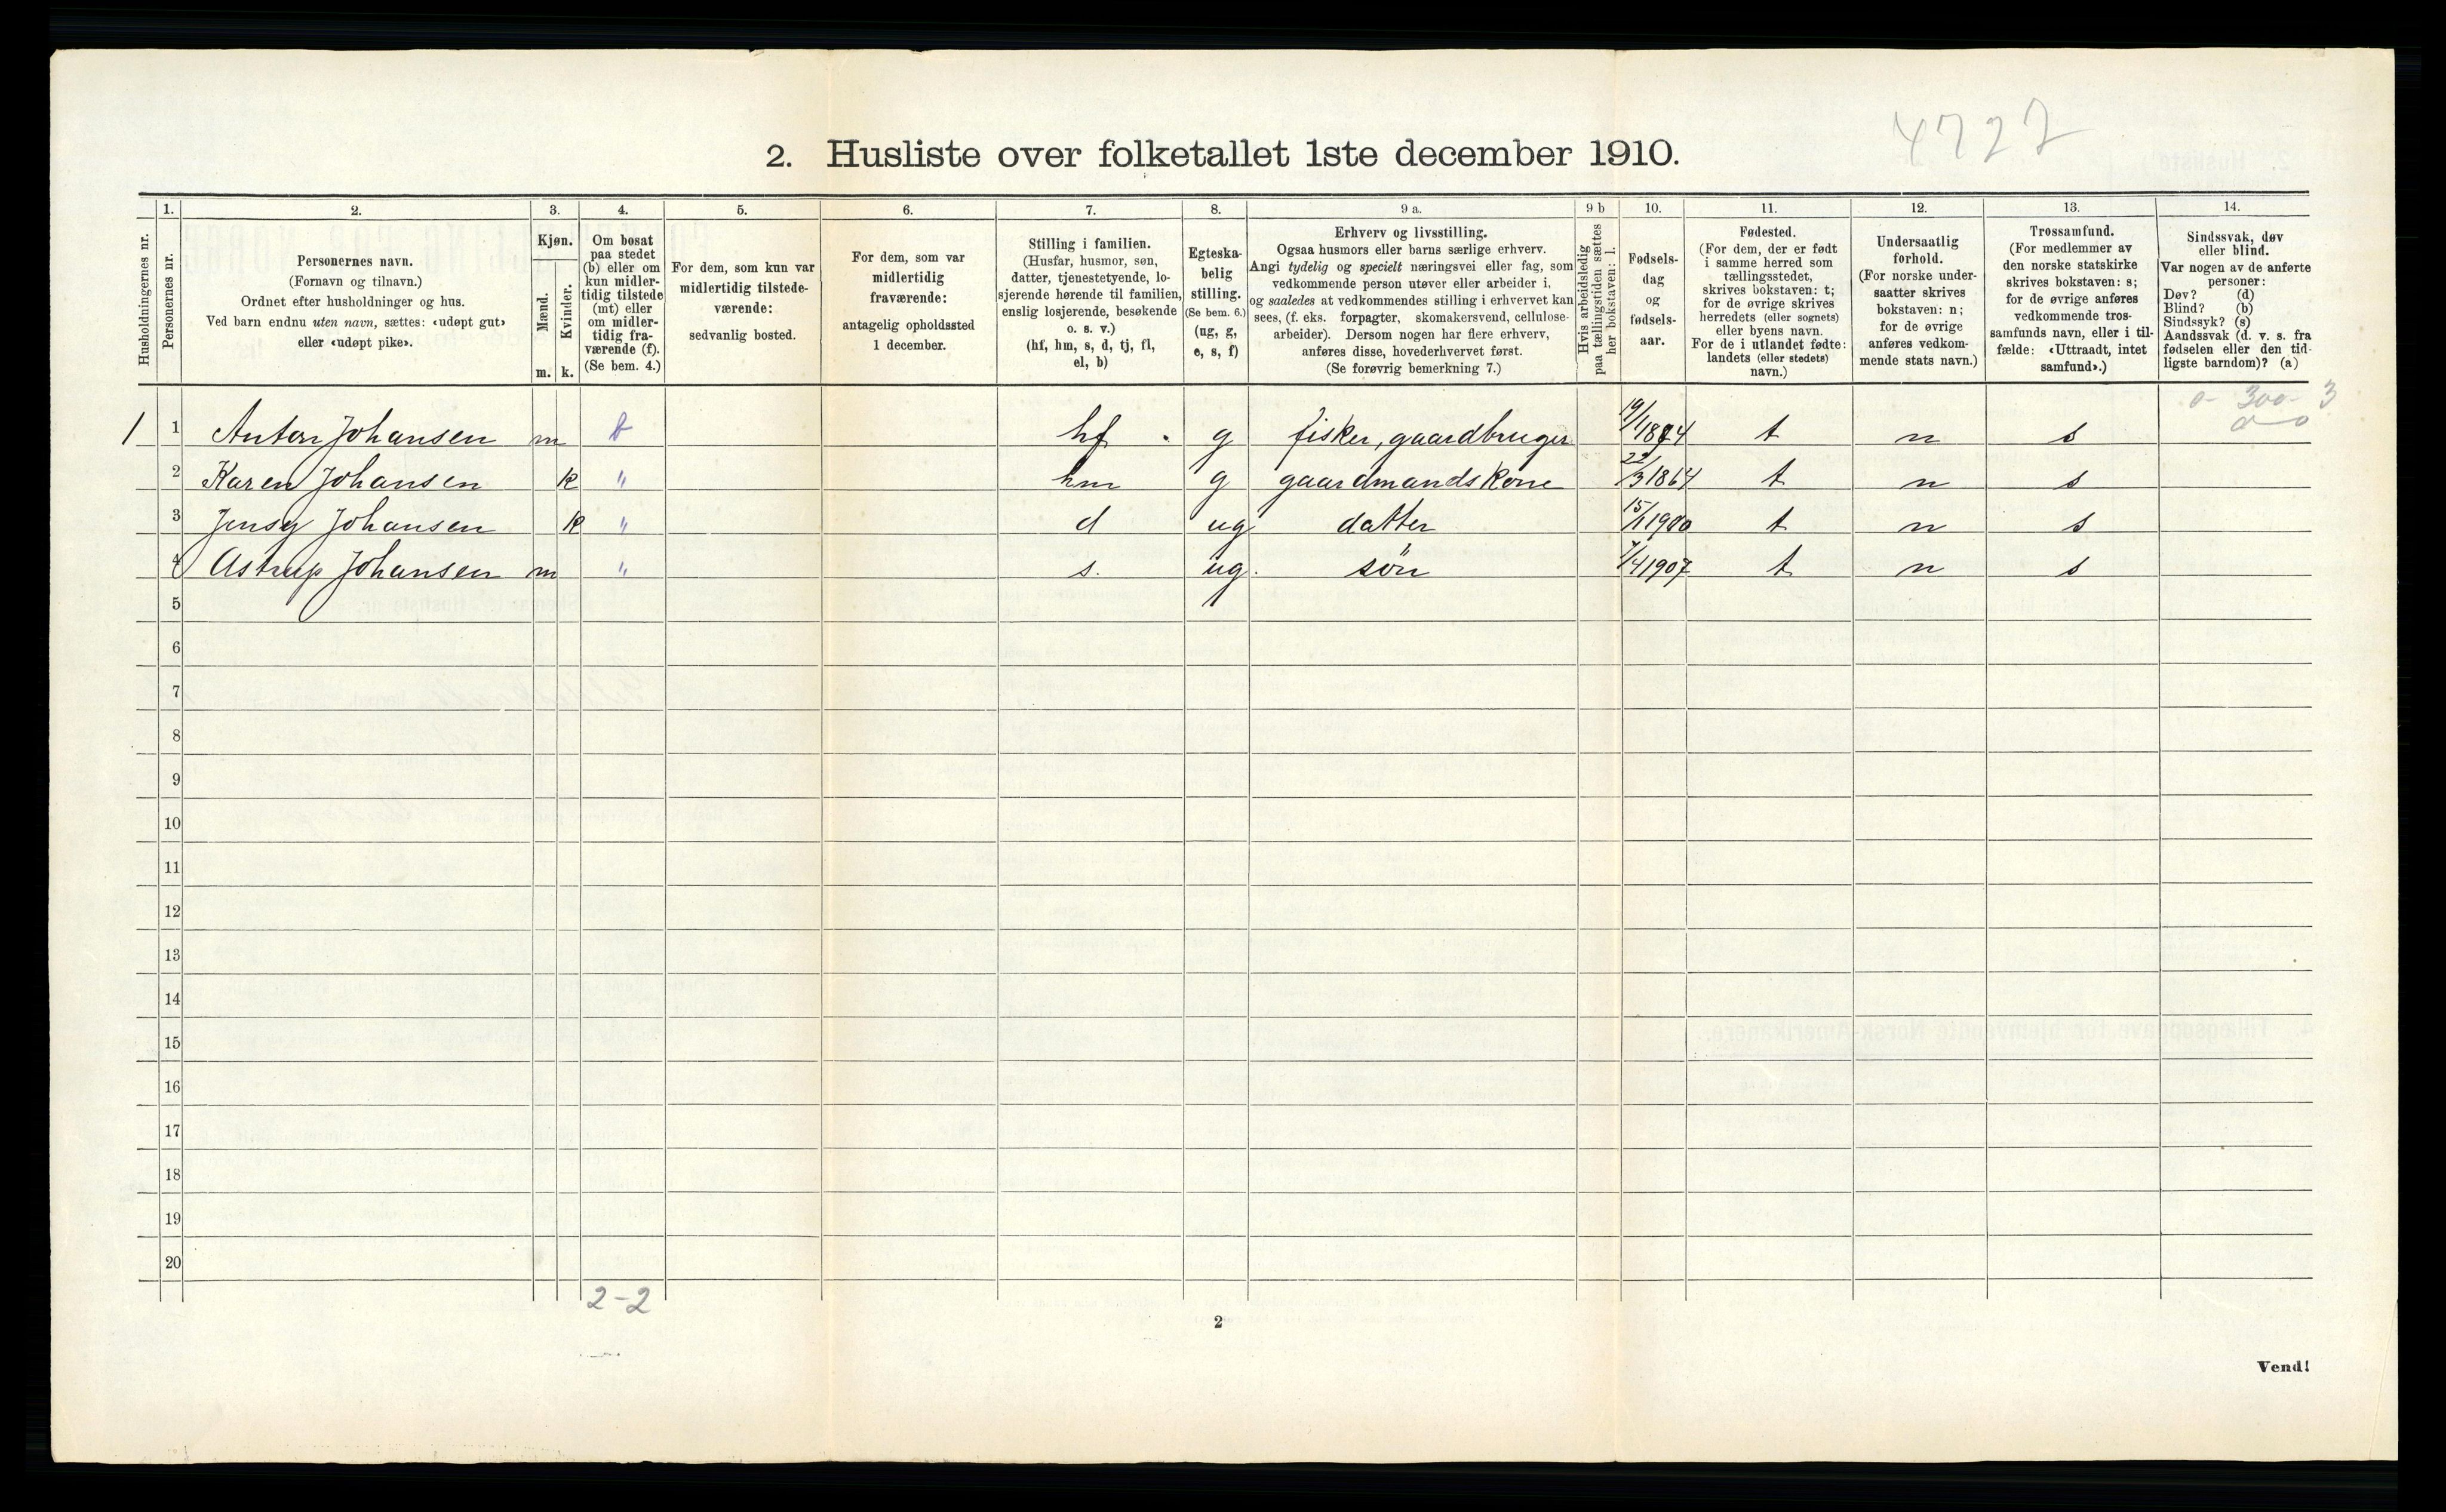 4727
2. Husliste over folketallet 1ste december 1910.
Husholdningernes nr.
1.
Personernes nr.
2.
Personernes navn.
(Fornavn og tilnavn.)
Ordnet efter husholdninger og hus.
Ved barn endnu uten navn, sættes: «udøpt gut»
eller «udøpt pike».
3.
Kjøn.
Mænd.
Kvinder.
m. k.
4.
Om bosat
paa stedet
(b) eller om
kun midler-
tidig tilstede
(mt) eller
om midler-
tidig fra-
værende (f).
(Se bem. 4.)
5.
For dem, som kun var
midlertidig tilstede-
værende:
sedvanlig bosted.
6.
For dem, som var
midlertidig
fraværende:
antagelig opholdssted
1 december.
7.
Stilling i familien.
(Husfar, husmor, søn,
datter, tjenestetyende, lo-
sjerende hørende til familien,
enslig losjerende, besøkende
o. s. v.)
(hf, hm, s, d, tj, fl,
el, b)
8.
Egteska-
belig
stilling.
(Se bem. 6.)
(ug, g,
e, s, f)
9 a.
Erhverv og livsstilling.
Ogsaa husmors eller barns særlige erhverv.
Angi tydelig og specielt næringsvei eller fag, som
vedkommende person utøver eller arbeider i,
og saaledes at vedkommendes stilling i erhvervet kan
sees, (f. eks. forpagter, skomakersvend, cellulose-
arbeider). Dersom nogen har flere erhverv,
anføres disse, hovederhvervet først.
(Se forøvrig bemerkning 7.)
9 b
Hvis arbeidsledig
paa tællingstiden sættes
her bokstaven: l.
10.
Fødsels-
dag
og
fødsels-
aar.
11.
Fødested.
(For dem, der er født
i samme herred som
tællingsstedet,
skrives bokstaven: t;
for de øvrige skrives
herredets (eller sognets)
eller byens navn.
For de i utlandet fødte:
landets (eller stedets)
navn.)
12.
Undersaatlig
forhold.
(For norske under-
saatter skrives
bokstaven: n;
for de øvrige
anføres vedkom-
mende stats navn.)
13.
Trossamfund.
(For medlemmer av
den norske statskirke
skrives bokstaven: s;
for de øvrige anføres
vedkommende tros-
samfunds navn, eller i til-
fælde: «Uttraadt, intet
samfund».)
14.
Sindssvak, døv
eller blind.
Var nogen av de anførte
personer:
Døv? (d)
Blind? (b)
Sindssyk? (s)
Aandssvak (d. v. s. fra
fødselen eller den tid-
ligste barndom)? (a)
0 - 300 - 3
1 1 Anton Johansen m b hf . g fisker, gaardbruger t n s
2 Karen Johansen k " hm g gaardmandskone 22/3 1864 t n s
3 Jensy Johansen k " d ug datter 15/1 1900 t n s
4 Astrup Johansen m " s. ug. søn 7/4 1907 t n s
5
6
7
8
9
10
11
12
13
14
15
16
17
18
19
20
2-2
2
Vend!